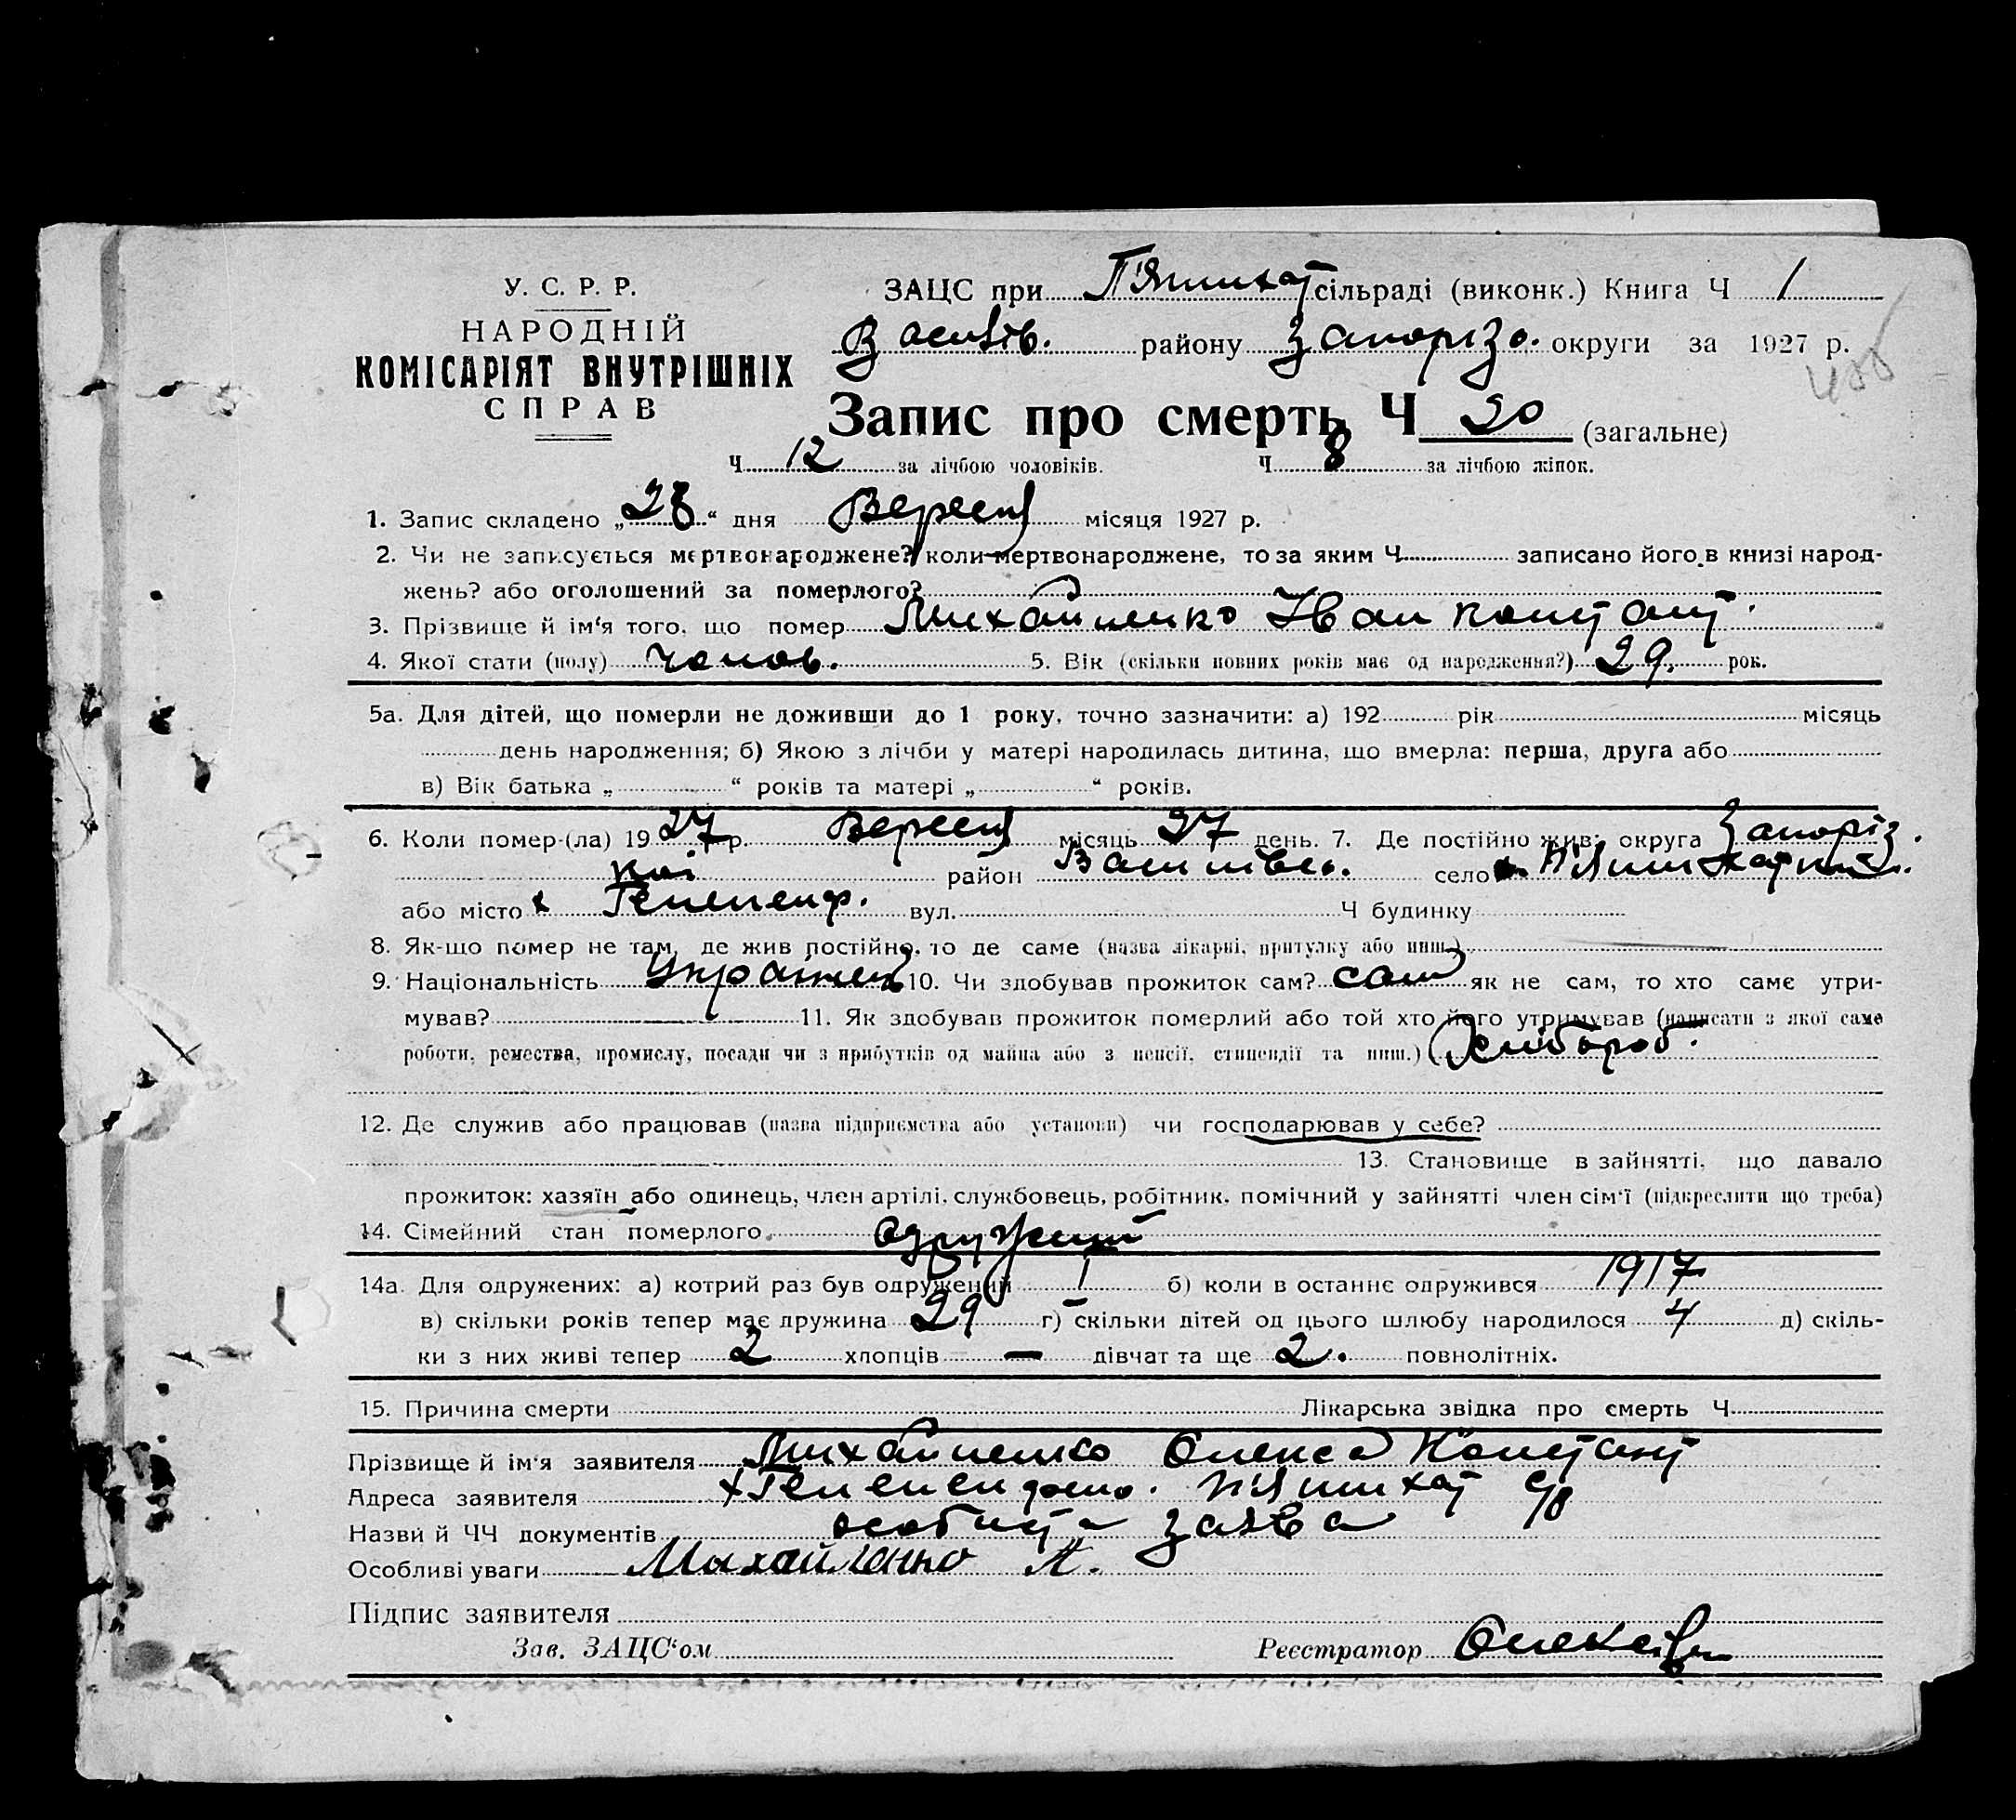 У. С. Р. Р.
НАРОДНІЙ
КОМІСАРІЯТ ВНУТРІШНІХ
СПРАВ
ЗАЦС при П'ятихат сільраді (виконк.) Книга Ч 1
Василів. району Запорізо. округи за 1927 р.
Запис про смерть Ч 20 (загальне)
Ч 12 за лічбою чоловіків. Ч 8 за лічбою жінок.
1. Запис складено „28“ дня Вересня місяця 1927 р.
2. Чи не записується мертвонароджене? коли мертвонароджене, то за яким Ч записано його в книзі народ-
жень? або оголошений за померлого?
3. Прізвище й ім'я того, що помер Михайленко Іван Констант.
4. Якої стати (полу) чолов. 5. Вік (скільки повних років має од народження?) 29. рок.
5а. Для дітей, що померли не доживши до 1 року, точно зазначити: а) 192 рік місяць
день народження; б) Якою з лічби у матері народилась дитина, що вмерла: перша, друга або
в) Вік батька „ “ років та матері „ “ років.
6. Коли помер-(ла) 1927 р. Вересня місяць 27 день. 7. Де постійно жив: округа Запоріз.
кої район Василівсь. село П'ятихатки.
або місто х Геленендф. вул. Ч будинку
8. Як-що помер не там, де жив постійно, то де саме (назва лікарні, притулку або инш.)
9. Національність Українец 10. Чи здобував прожиток сам? сам як не сам, то хто саме утри-
мував? 11. Як здобував прожиток померлий або той хто його утримував (написати з якої саме
роботи, ремества, промислу, посади чи з прибутків од майна або з пенсії, стипендії та инш.) Хлібороб.
12. Де служив або працював (назва підприємства або установи) чи господарював у себе?
13. Становище в зайнятті, що давало
прожиток: хазяїн або одинець, член артілі, службовець, робітник, помічний у зайнятті член сім'ї (підкреслити що треба)
14. Сімейний стан померлого одружений
14а. Для одружених: а) котрий раз був одружений 1 б) коли в останнє одружився 1917
в) скільки років тепер має дружина 29 г) скільки дітей од цього шлюбу народилося 4 д) скіль-
ки з них живі тепер 2 хлопців — дівчат та ще 2. повнолітніх.
15. Причина смерти Лікарська звідка про смерть Ч
Прізвище й ім'я заявителя Михайленко Олекса Констант
Адреса заявителя х Геленендф. П'ятихат с/р
Назви й ЧЧ документів особиста заява
Особливі уваги Михайленко А.
Підпис заявителя
Зав. ЗАЦС'ом Реєстратор